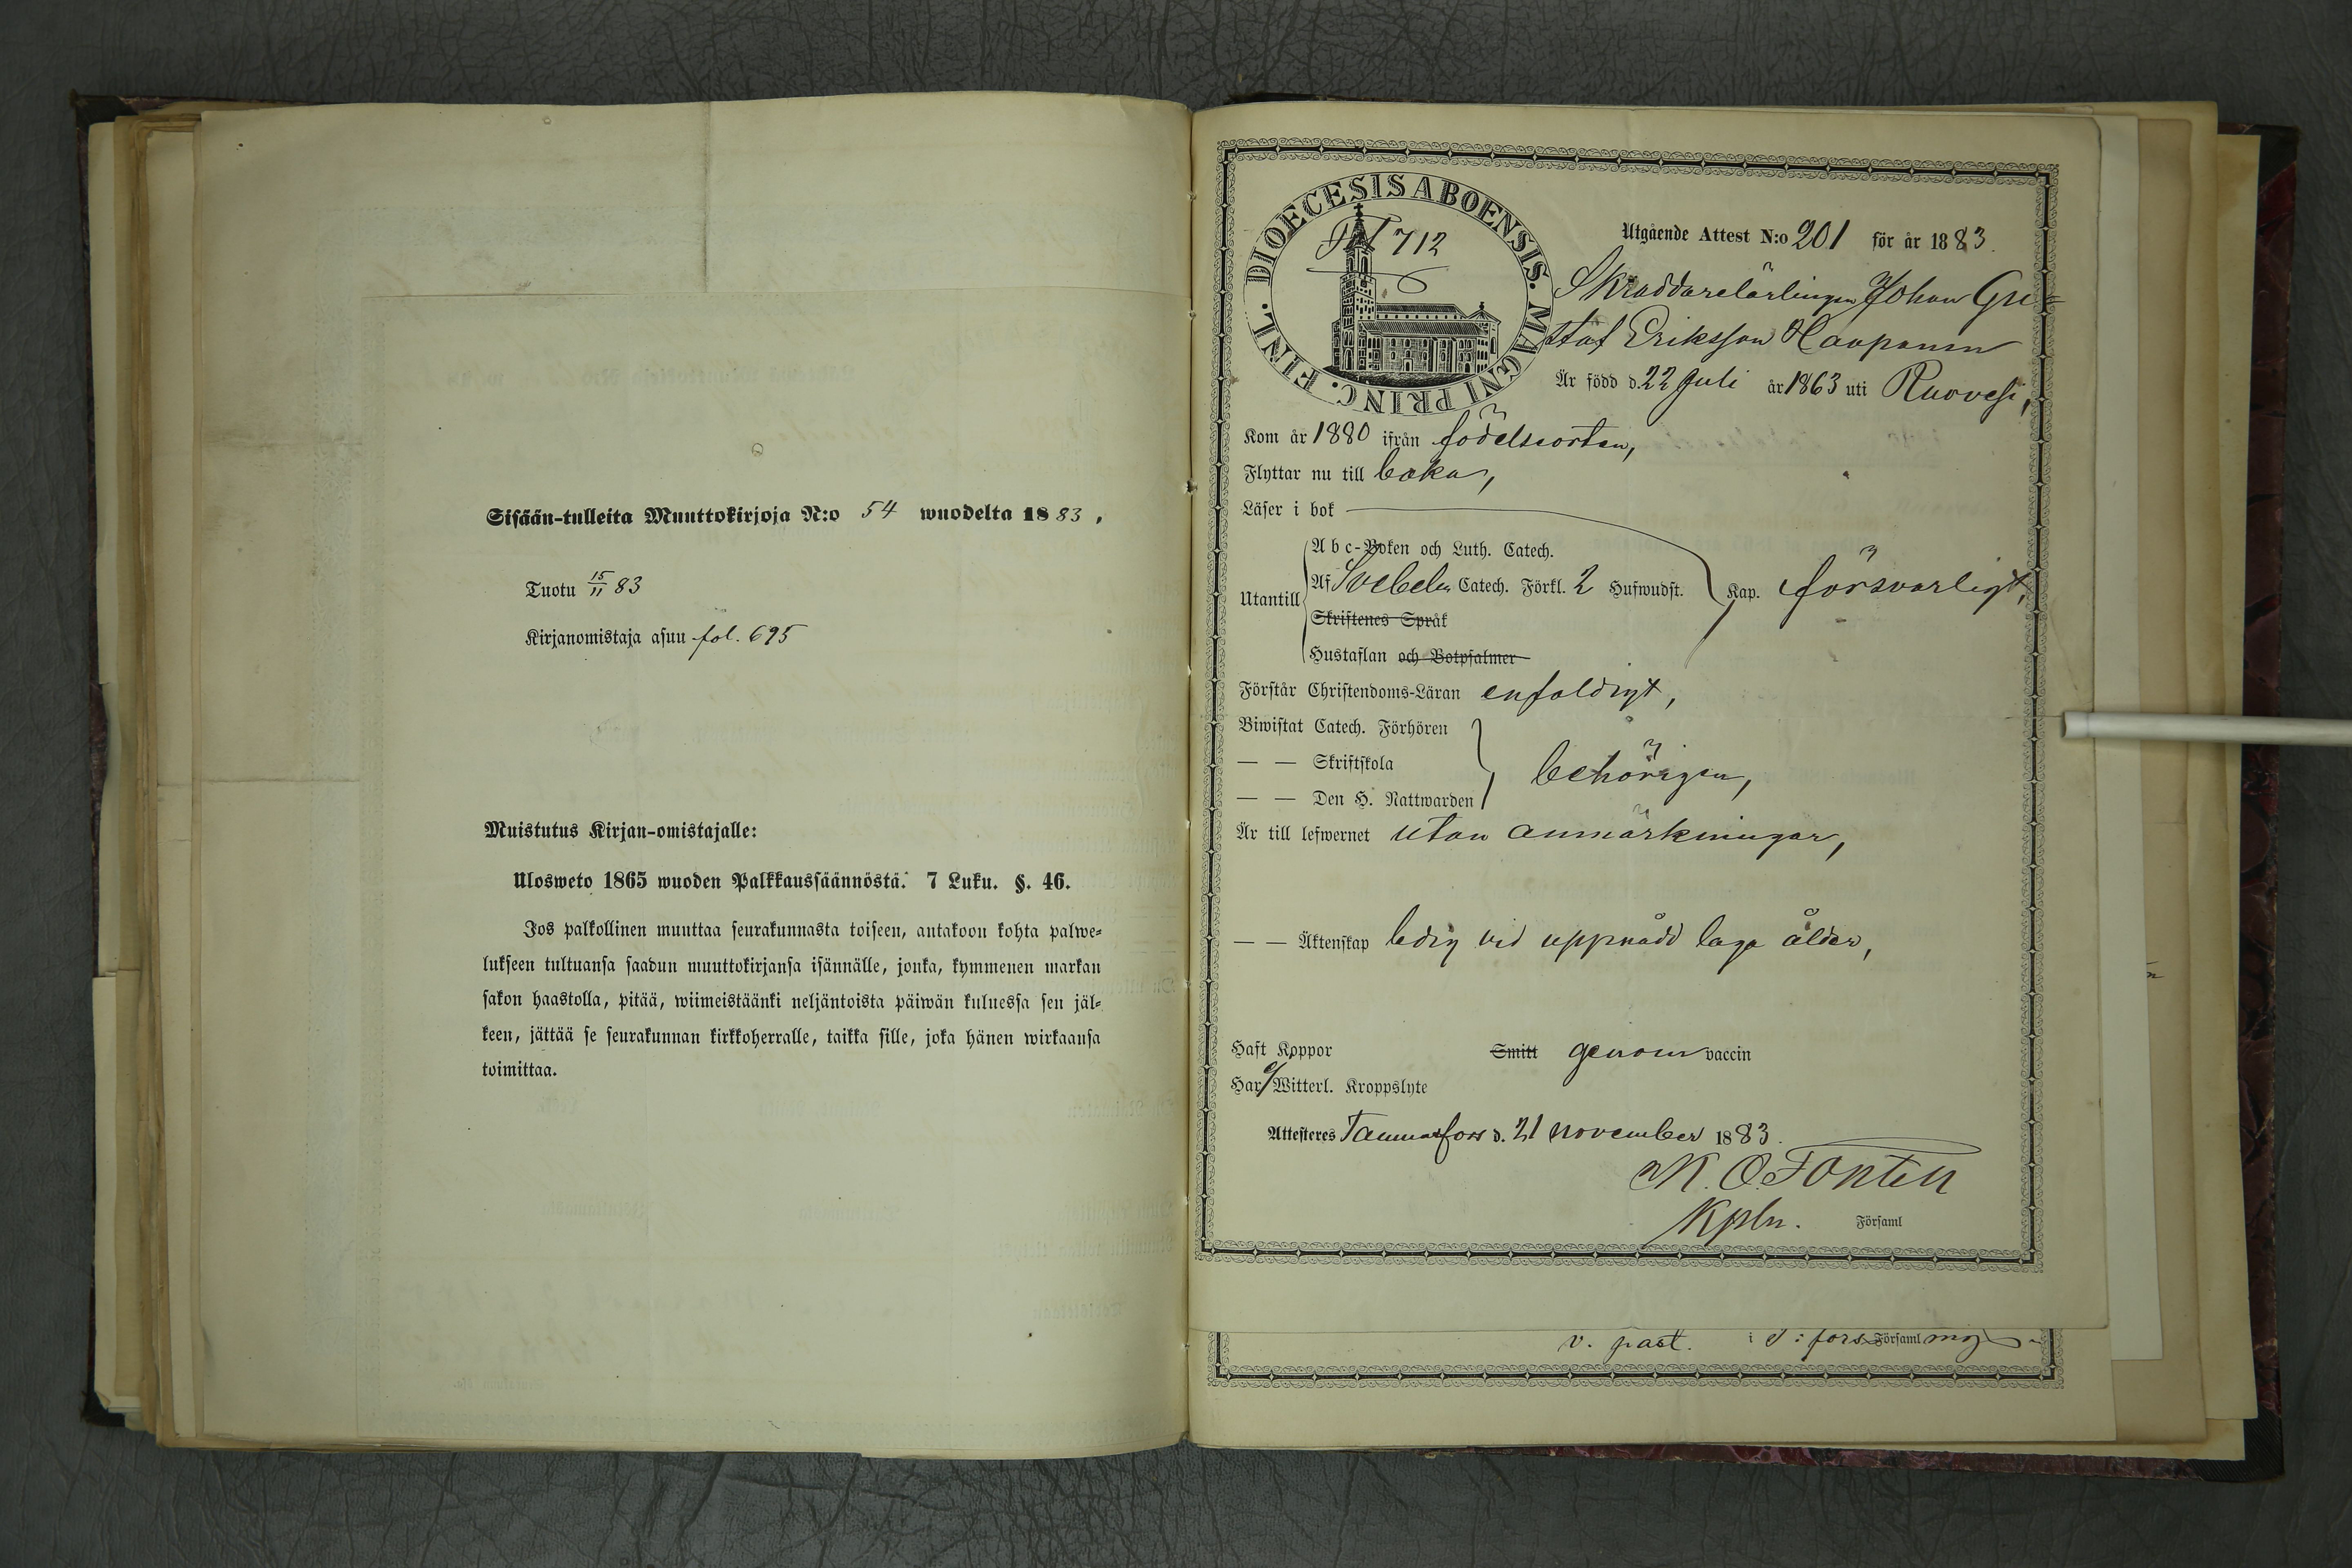 Sisään-tulleita Muuttokirjoja N:o 54 wuodelta 1883.
Tuotu 15/11 83
Kirjanomistaja asuu fol. 695
Muistutus Kirjan-omistajalle:
Ulosweto 1865 wuoden Palkkaussäännöstä. 7 Luku. §. 46.
Jos palkollinen muuttaa seurakunnasta toiseen, antakoon kohta palwe-
lukseen tultuansa saadun muuttokirjansa isännälle, jonka, kymmenen markan
sakon haastolla, pitää, wiimeistäänki neljäntoista päiwän kuluessa sen jäl-
keen, jättää se seurakunnan kirkkoherralle, taikka sille, joka hänen wirkaansa
toimittaa.
DIOECESIS ABOENSIS. MAGNI PRINC. FINL.
712
Utgående Attest N:o 201 för år 1883.
Skräddarelärlingen Johan Gu=
staf Eriksson Haapanen
Är född d. 22 Juli år 1863 uti Ruovesi,
Kom år 1880 ifrån födelseorten,
Flyttar nu till
Läser i bok
Utantill
A b c-Boken och Luth. Catech.
Af Svebelii Catech. Förkl. 2 Hufwudst. Kap. försvarligt,
Skriftenes Språk
Hustaflan och Botpsalmer
Förstår Christendoms-Läran enfaldigt,
Biwistat Catech. Förhören
— — Skriftskola
behörigen,
— — Den H. Nattwarden
Är till lefwernet utan anmärkningar,
— — Äktenskap ledig vid uppnådd laga ålder,
Haft Koppor Smitt genom vaccin
Har ej Witterl. Kroppslyte
Attesteres Tammerfors d. 21 november 1883.
K. O. Fontell
Kpln. Församl
v. past. i T:fors Församl ing